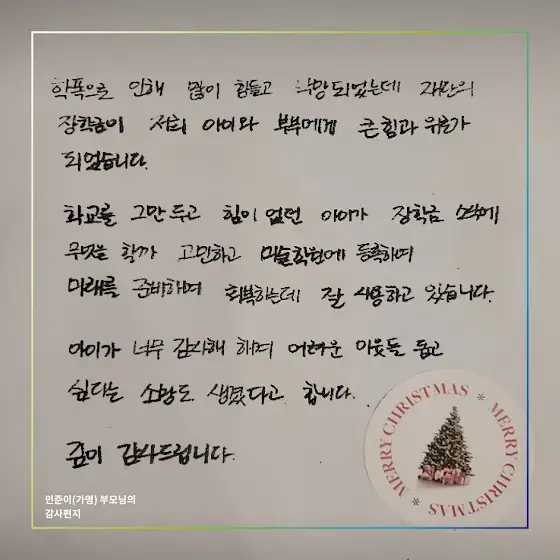 학폭으로 인해 많이 힘들고 낙망되었는데 재단의
장학금이 저희 아이와 부부에게 큰힘과 위로가
되었습니다.
학교를 그만두고 힘이 없던 아이가 장학금 소식에
무엇을 할까 고민하고 미술학원에 등록하여
미래를 준비하며 회복하는데 잘 사용하고 있습니다.
아이가 너무 감사해 하며 어려운 이웃들 돕고
싶다는 소망도 생겼다고 합니다.
깊이 감사드립니다.
MERRY CHRISTMAS * MERRY CHRISTMAS *
민준이(가명) 부모님의
감사편지